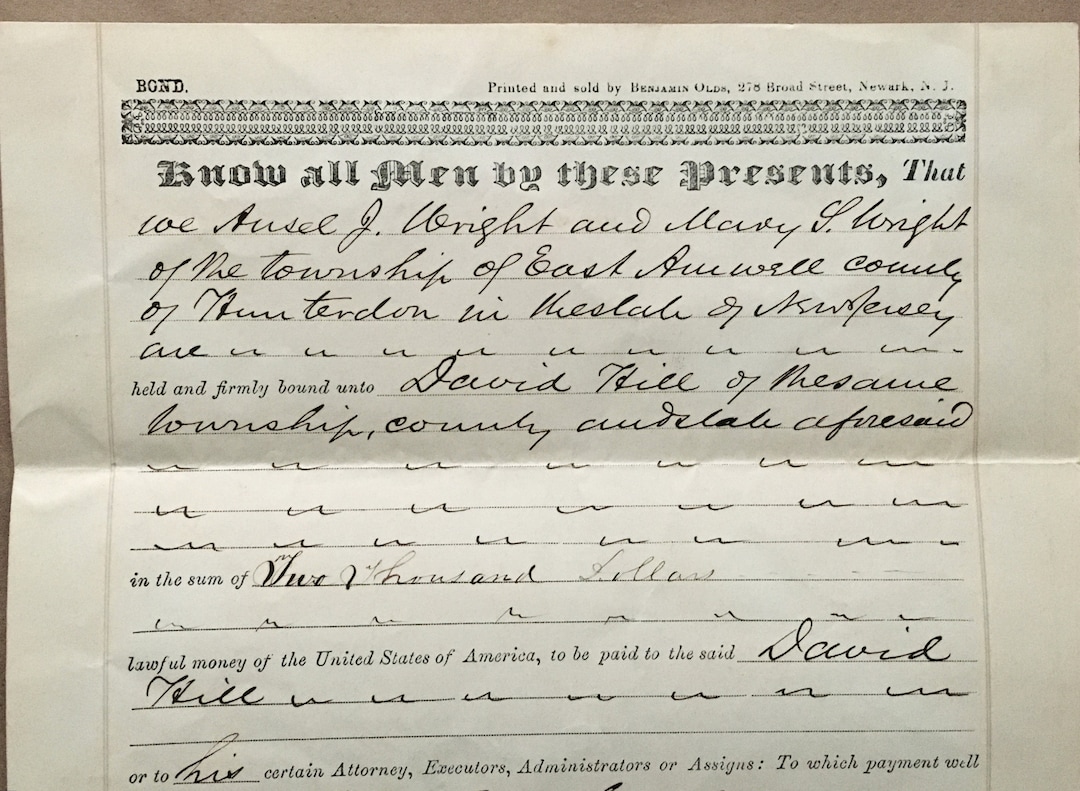 BOND.
Printed and sold by BENJAMIN OLDS, 278 Broad Street, Newark, N. J.
Know all Men by these Presents, That
we Ansel J. Wright and Mary S. Wright
of the township of East Amwell county
of Hunterdon in the state of New Jersey
are
held and firmly bound unto David Hill of the same
township, county and state aforesaid
in the sum of Two Thousand Dollars
lawful money of the United States of America, to be paid to the said David
Hill
or to his certain Attorney, Executors, Administrators or Assigns: To which payment well